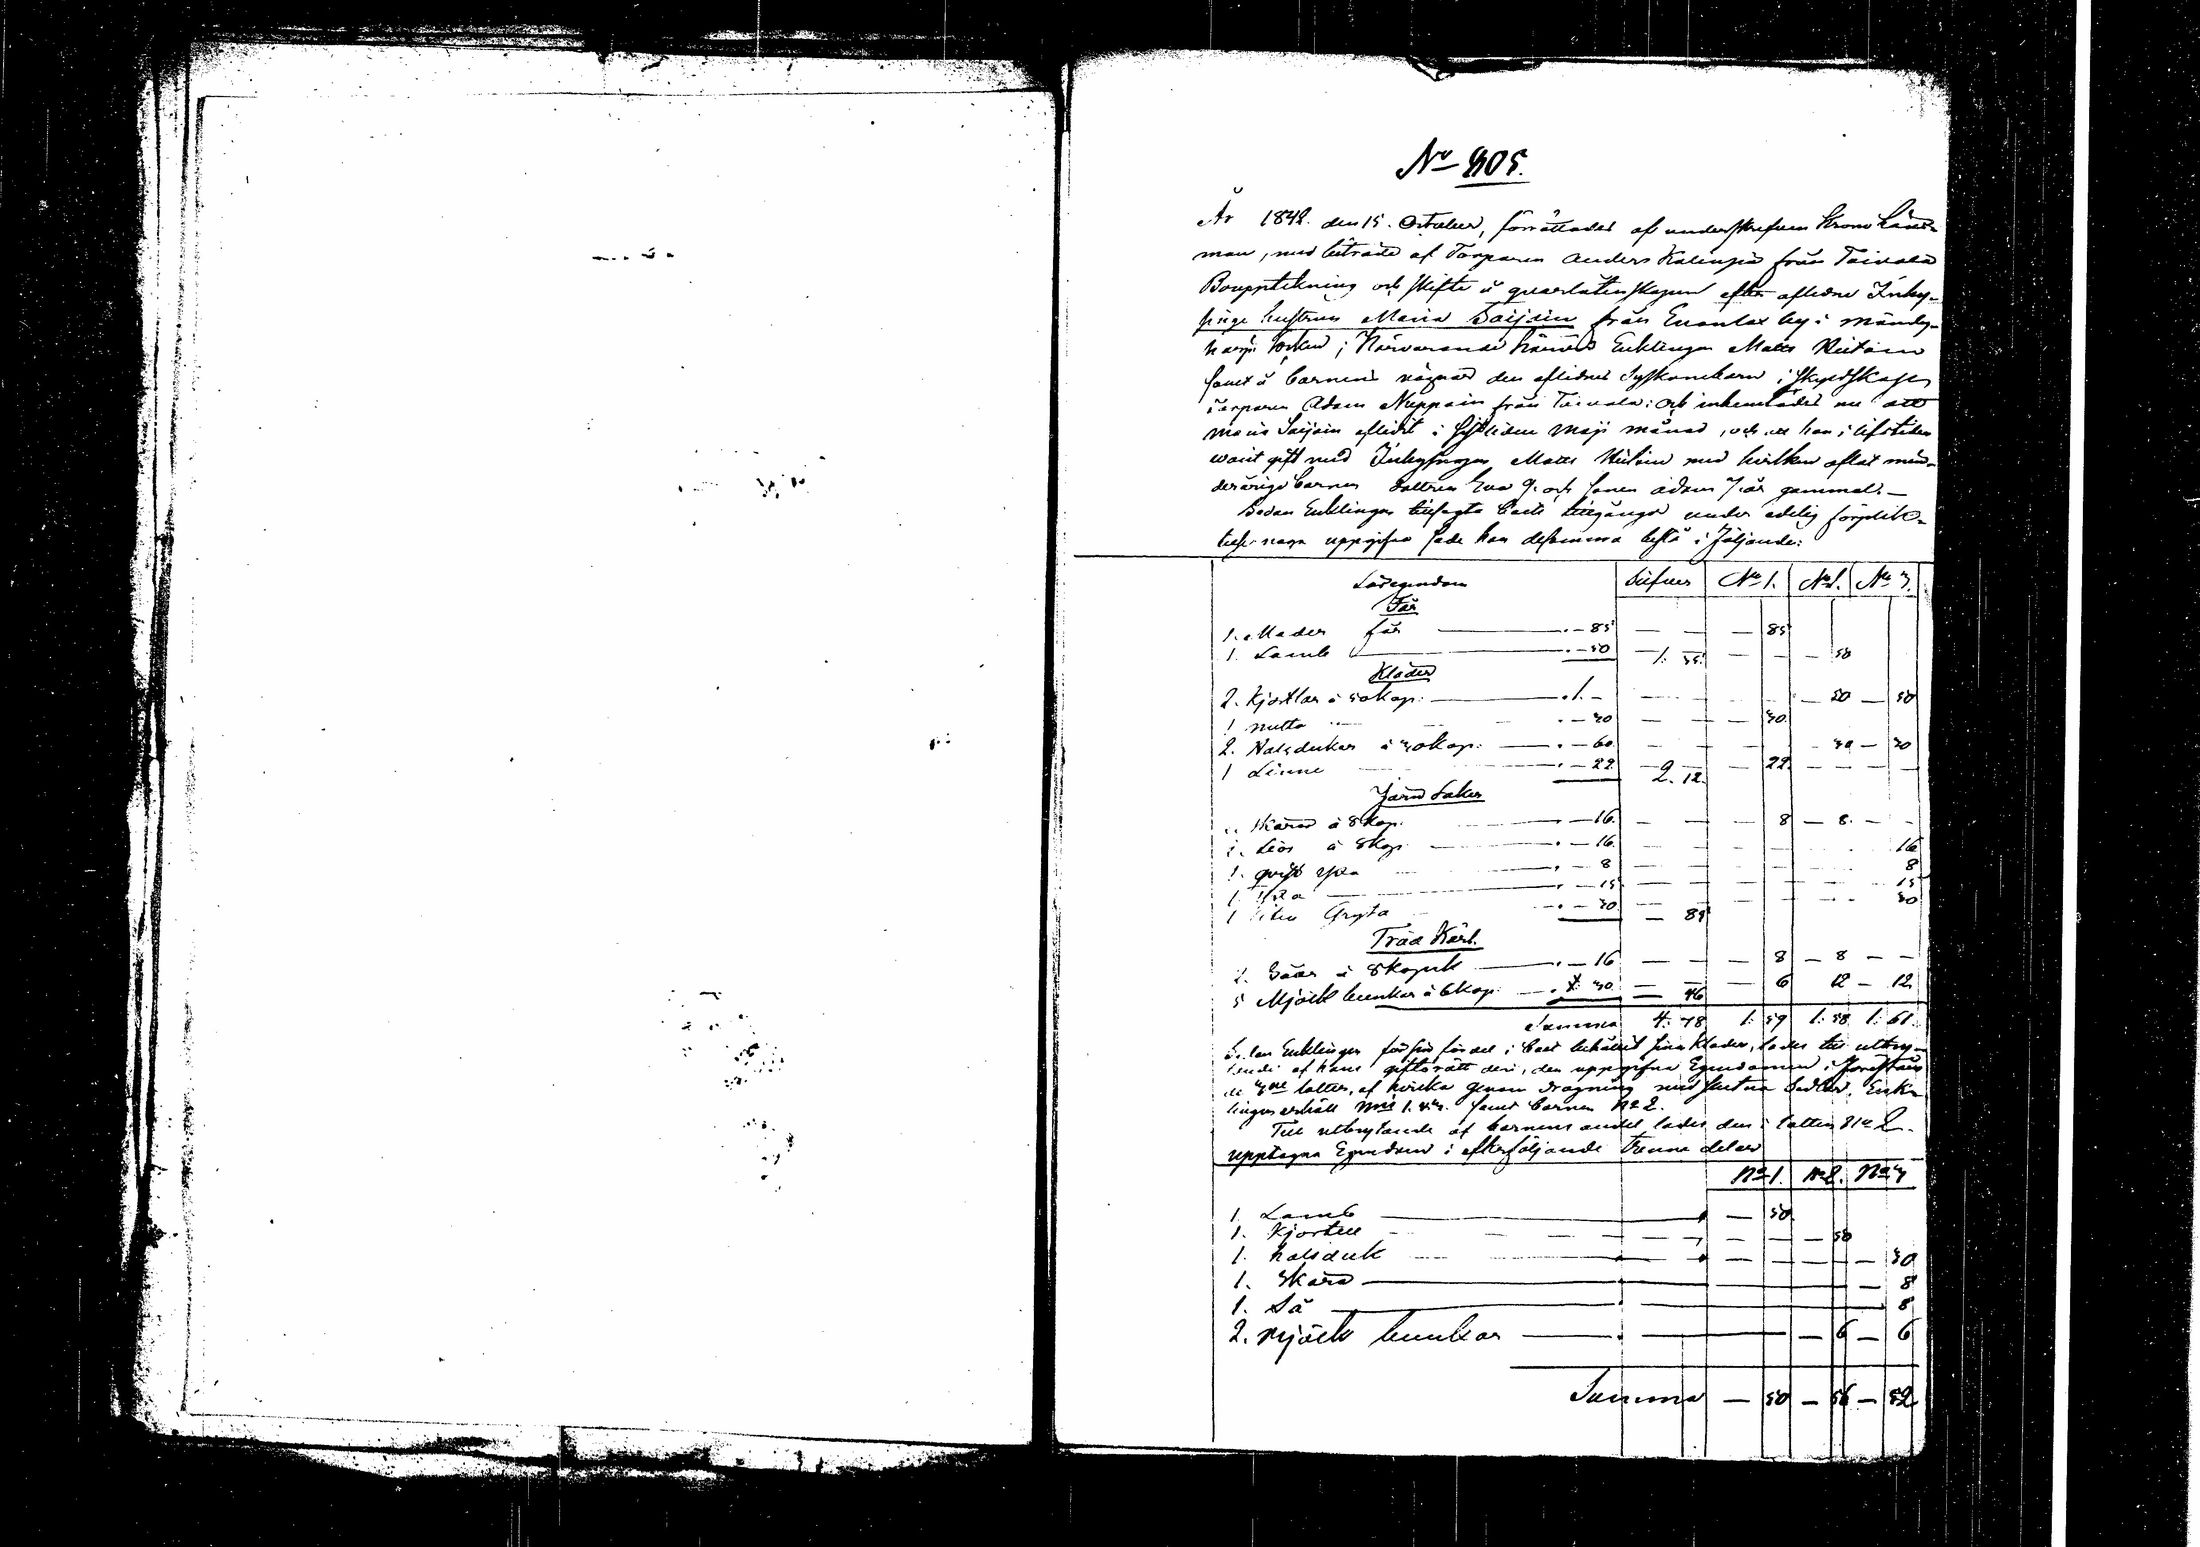 No 305.
År 1842. den 15. October, förrättades af underskrefven Krono Läns-
man, med biträde af Torparen Anders Kalinpä från Toivola
Bouppteckning och skifte å qvarlåtenskapen efter aflidne Inhy-
singe hustrun Maria Saijain från Enonlax by i Mändy-
harju socken; Närvarande härvid Enklingen Matts
samt å barnens vägnar den aflidnes Syskonebarn i skyldskap
torparen Adam Nuppoin från Toivola: och inhemtades nu att
Maria Saijain aflidit i sistliden Maji månad, och att hon i lifstiden
warit gift med Inhysingen Matts med hvilken aflat min-
derårige barnen dottren Eva 9. och sonen Adam 7 år gammal. —
Sedan Enklingen tillsagts boets tillgångar under edelig förplik-
telse noga uppgifva sade han desamma bestå i följande:
Lösegendom Silfver No 1. No 2. No 3.
Får
1. Moder får — . — 85 — — — 85
1. Lamb — . — 50 1. 35. — — — 50
Kläder
2. Kjortlar à 50 kop. — . 1. — — 50 — 50
1 mutta . — 30 — — 30
2. Halsdukar à 30 kop. — . — 60 — — — 30 — 30
1 Linne . — 22 2. 12. — 22. — — —
Järn Saker
2. Skäror à 8 kop. . — 16. — — 8 — 8. — -
2. Liar à 8 kop — . — 16. — — 16
1. qvist yxa . — 8 — — 8
1. yxa — . — 15 — — 15
1 liten Gryta . — 30 — 85 30
Träd Kärl.
2. Såar à 8 kopek — . — 16 — — 8 — 8 — —
5 Mjölk bunkar à 6 kop. — . — 30 — 46 — 6 12 — 12
Summa 4: 78 1: 59 1: 58 1: 61
Sedan Enklingen för sin fördel i boet behållit sina kläder, lades till utbry-
tande af hans giftorätt deri, den uppgifna Egendomen i förestående
3ne lotter, af hvilka genom dragning med slutna Sedlar, Enk-
lingen erhöll No 1. & 3. samt barnen No 2.
Till utbrytande af barnens andel lades den i lotten No 2.
upptagna Egendom i efterföljande Trenne delar
No 1. No 2. No 3
1. Lamb — — 50
1. Kjortell — — — — 50
1. halsduk — — — — — 30
1. Skära — — 8
1. Så — 8
2. Mjölk bunkar — — 6 — 6
Summa — 50 — 56 — 52